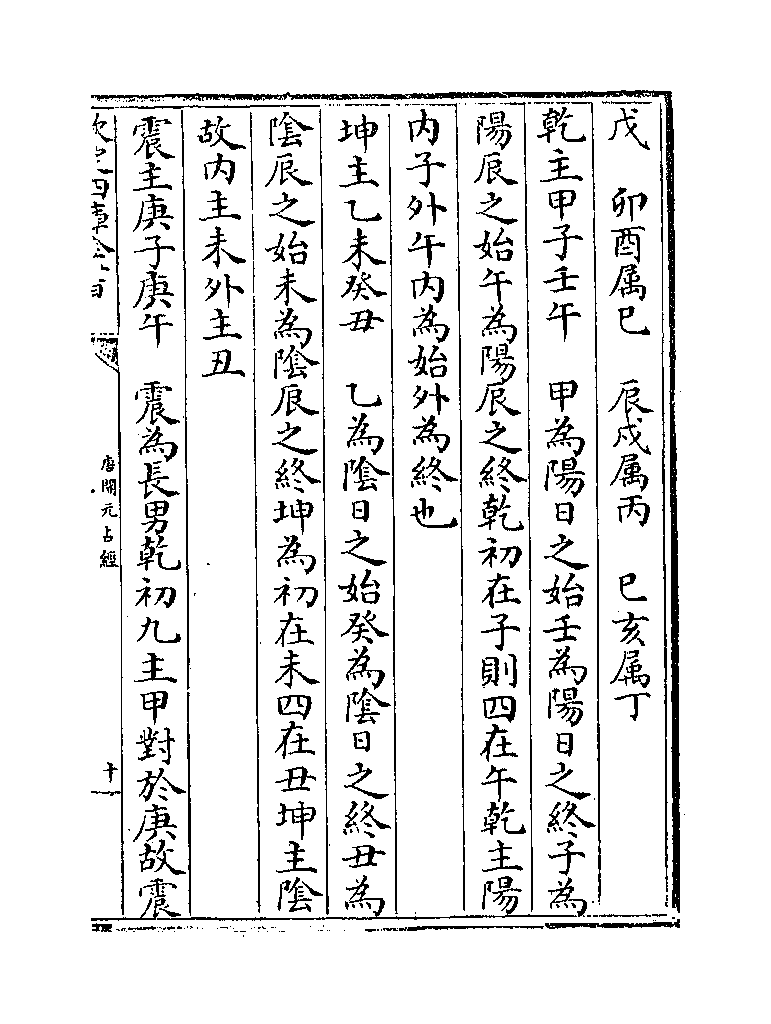 戊　卯酉属已　辰戍属丙　巳亥属丁
乾主甲子壬午　甲為陽日之始壬為陽日之終子為
陽辰之始午為陽辰之終乾初在子則四在午乾主陽
内子外午内為始外為終也
坤主乙未癸丑　乙為陰日之始癸為陰日之終丑為
陰辰之始未為陰辰之終坤為初在未四在丑坤主陰
故内主未外主丑
震主庚子庚午　震為長男乾初九主甲對於庚故震
唐開元占經
十一